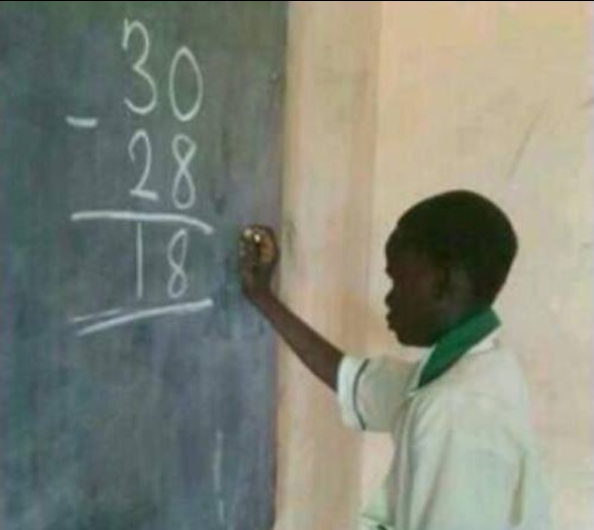 30
- 28
18